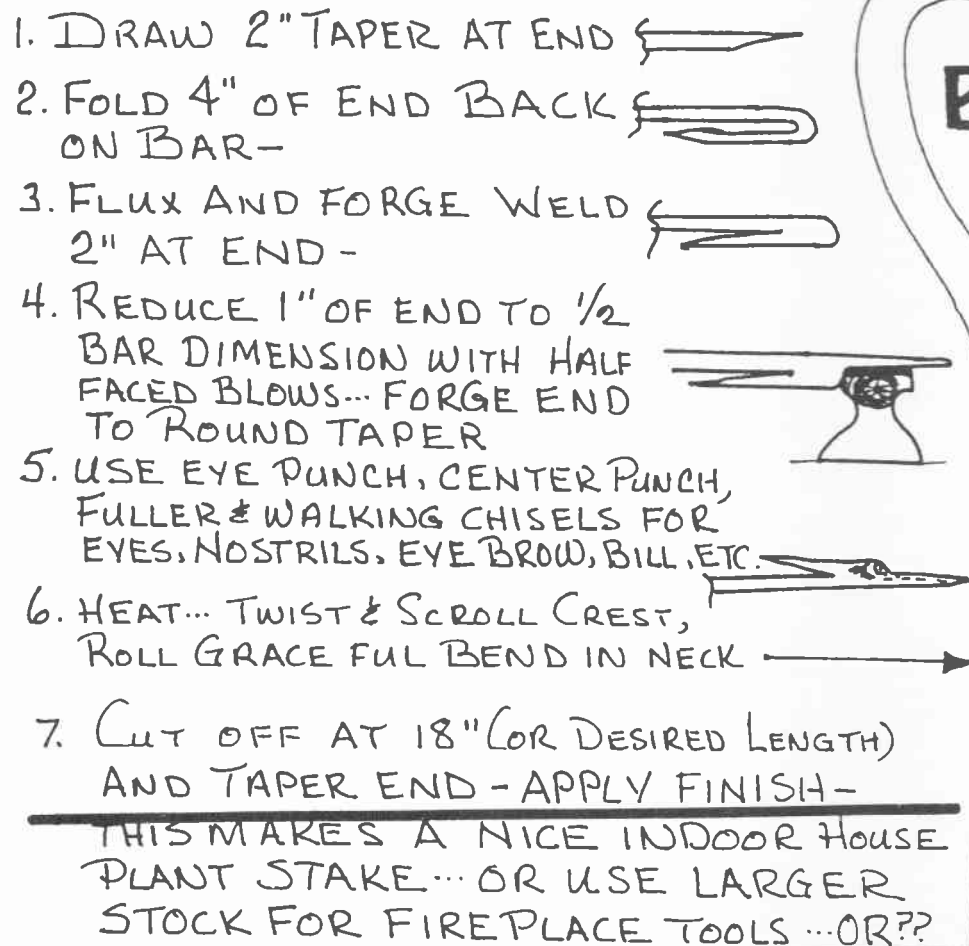 1. DRAW 2" TAPER AT END
2. FOLD 4" OF END BACK
ON BAR-
3. FLUX AND FORGE WELD
2" AT END -
4. REDUCE 1" OF END TO 1/2
BAR DIMENSION WITH HALF
FACED BLOWS... FORGE END
TO ROUND TAPER
5. USE EYE PUNCH, CENTER PUNCH,
FULLER & WALKING CHISELS FOR
EYES, NOSTRILS, EYE BROW, BILL, ETC.
6. HEAT... TWIST & SCROLL CREST,
ROLL GRACE FUL BEND IN NECK
7. CUT OFF AT 18" (OR DESIRED LENGTH)
AND TAPER END - APPLY FINISH -
THIS MAKES A NICE INDOOR HOUSE
PLANT STAKE... OR USE LARGER
STOCK FOR FIREPLACE TOOLS ... OR??